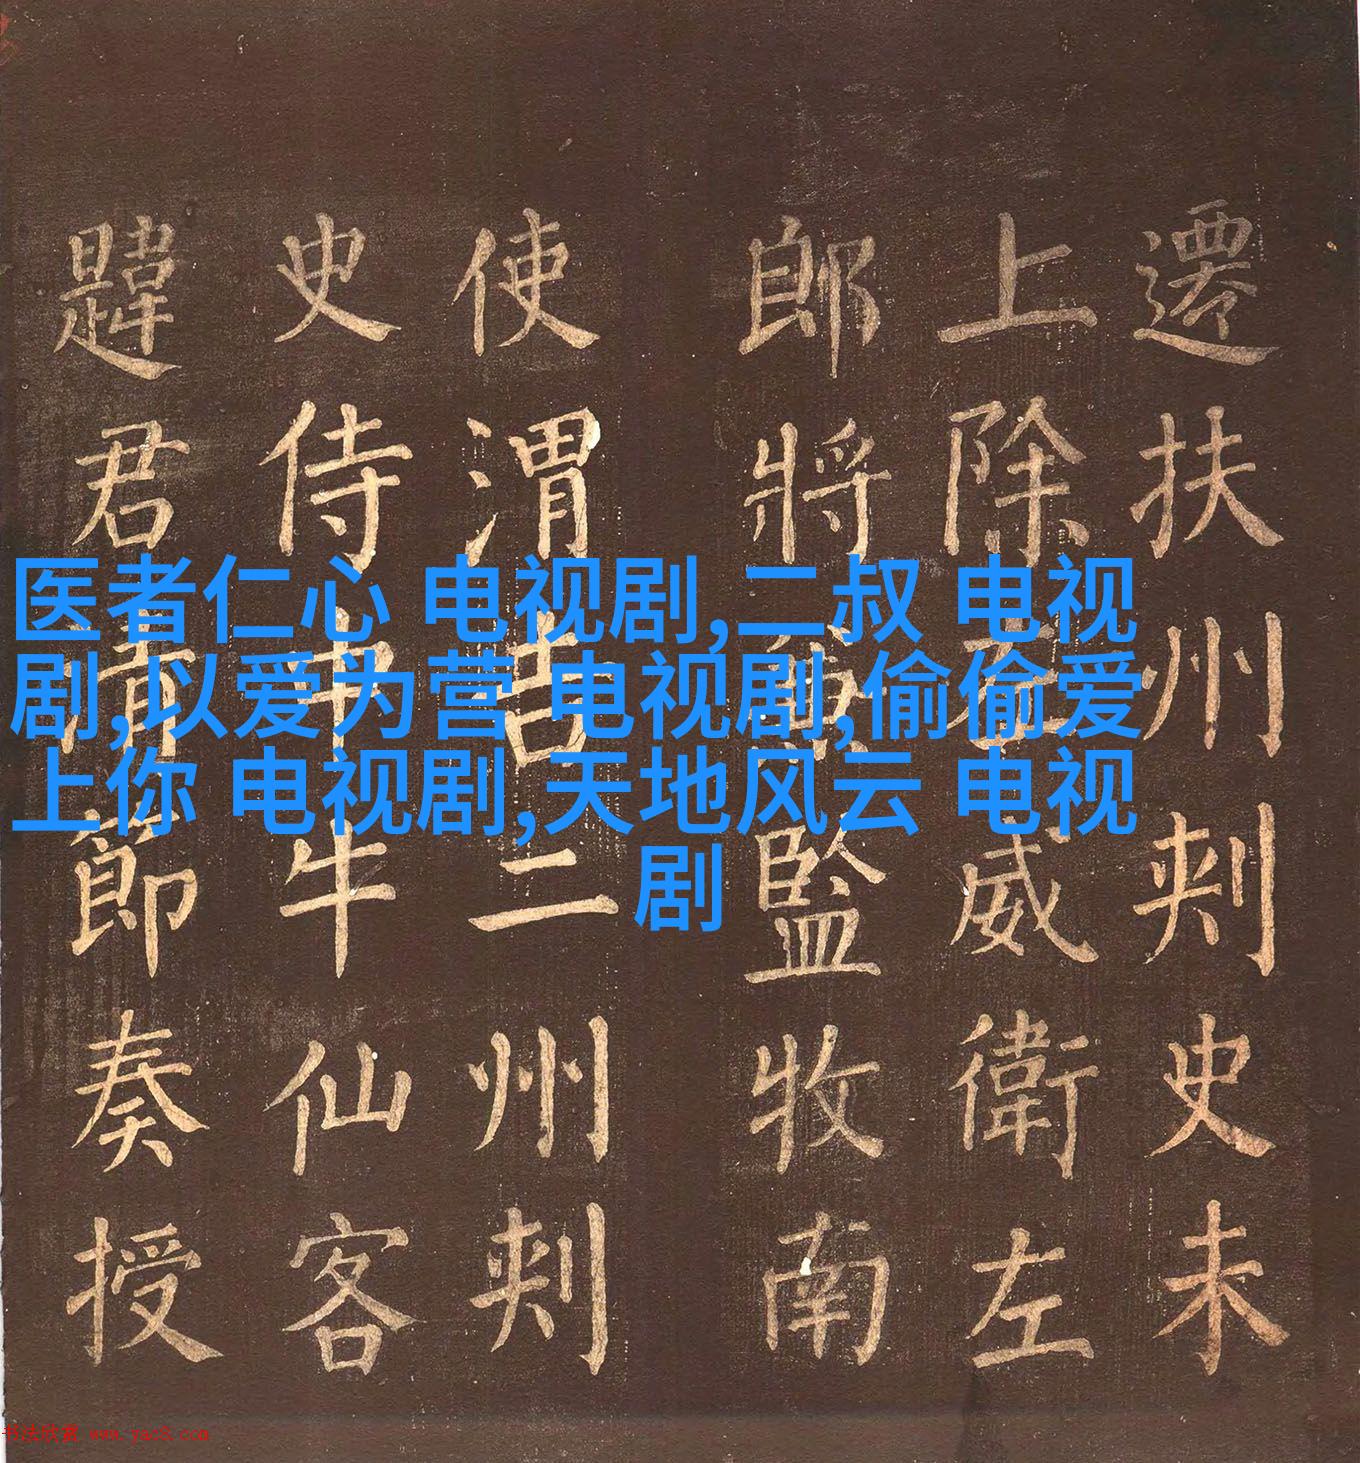 遷扶州刾史未
上除威衛左
郎將兼監牧南
使渭吉二州刾
史侍中牛仙客
韙君清節奏授
医者仁心 电视剧,二叔 电视
剧,以爱为营 电视剧,偷偷爱
上你 电视剧,天地风云 电视
剧
书法欣赏 www.yac8.com